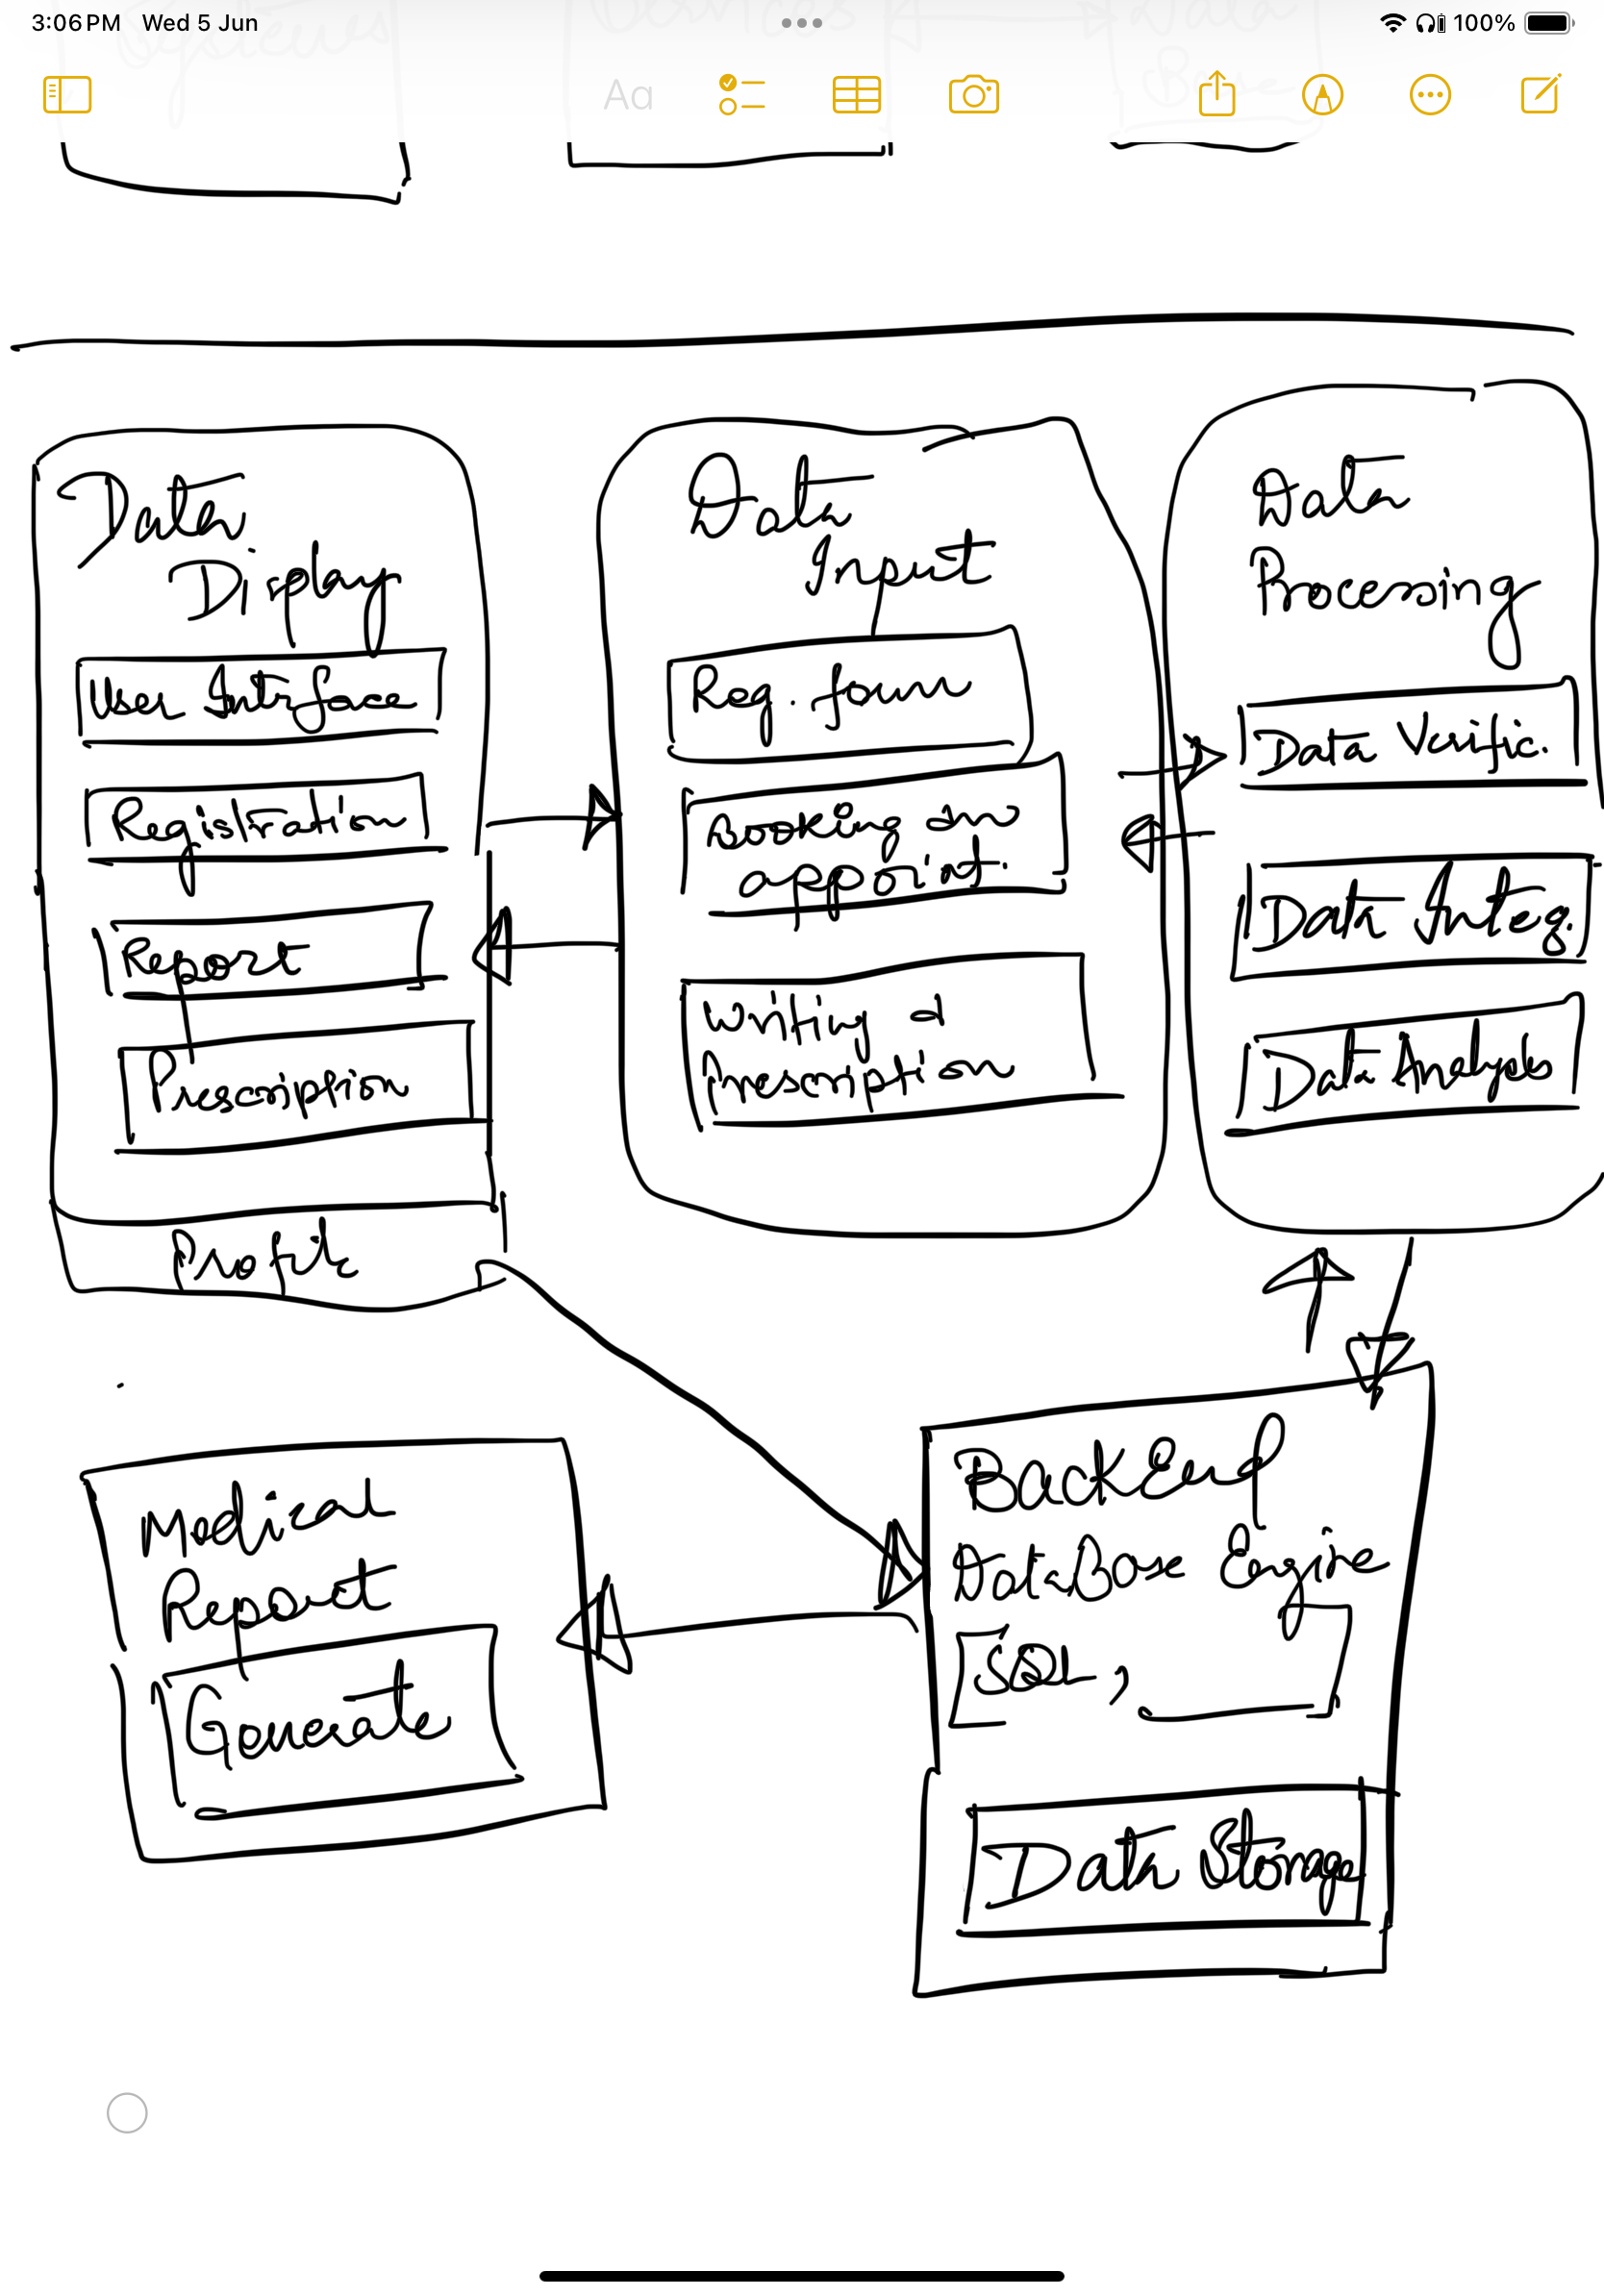 3:06 PM Wed 5 Jun
100%
Systems
Services
Data
Base
Aa
Data
Display
User Interface
Registration
Report
Prescription
Profile
Data
Input
Reg. form
Booking an
appoint.
Writing a
Prescription
Data
Processing
Data Verific.
Data Integ.
Data Analysis
Medical
Report
Generate
BackEnd
DataBase Engine
SQL,
Data Storage